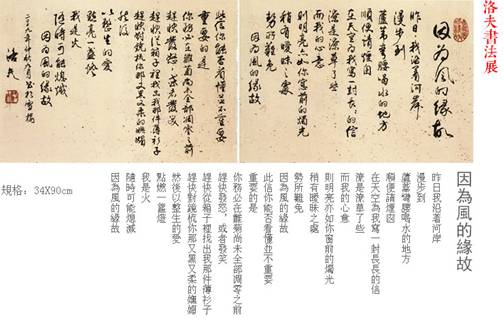 洛夫書法展
因為風的緣故
昨日我沿著河岸
漫步到
蘆葦彎腰喝水的地方
順便請煙囪
在天空為我寫一封長長的信
潦是潦草了些
而我的心意
則明亮亦如你窗前的燭光
稍有曖昧之處
勢所難免
因為風的緣故
此信你能否看懂並不重要
重要的是
你務必在雛菊尚未全部凋零之前
趕快發怒 或者發笑
趕快從箱子裡找出我那件薄衫子
趕快對鏡梳你那又黑又柔的嫵媚
然後
以整生的愛
點燃一盞燈
我是火
隨時可能熄滅
因為風的緣故
洛夫
因為風的緣故
昨日我沿着河岸
漫步到
蘆葦彎腰喝水的地方
順便請煙囪
在天空為我寫一封長長的信
潦是潦草了些
而我的心意
則明亮亦如你窗前的燭光
稍有曖昧之處
勢所難免
因為風的緣故
此信你能否看懂並不重要
重要的是
你務必在雛菊尚未全部凋零之前
趕快發怒，或者發笑
趕快從箱子裡找出我那件薄衫子
趕快對鏡梳你那又黑又柔的嫵媚
然後以整生的愛
點燃一盞燈
我是火
隨時可能熄滅
因為風的緣故
規格：34X90cm